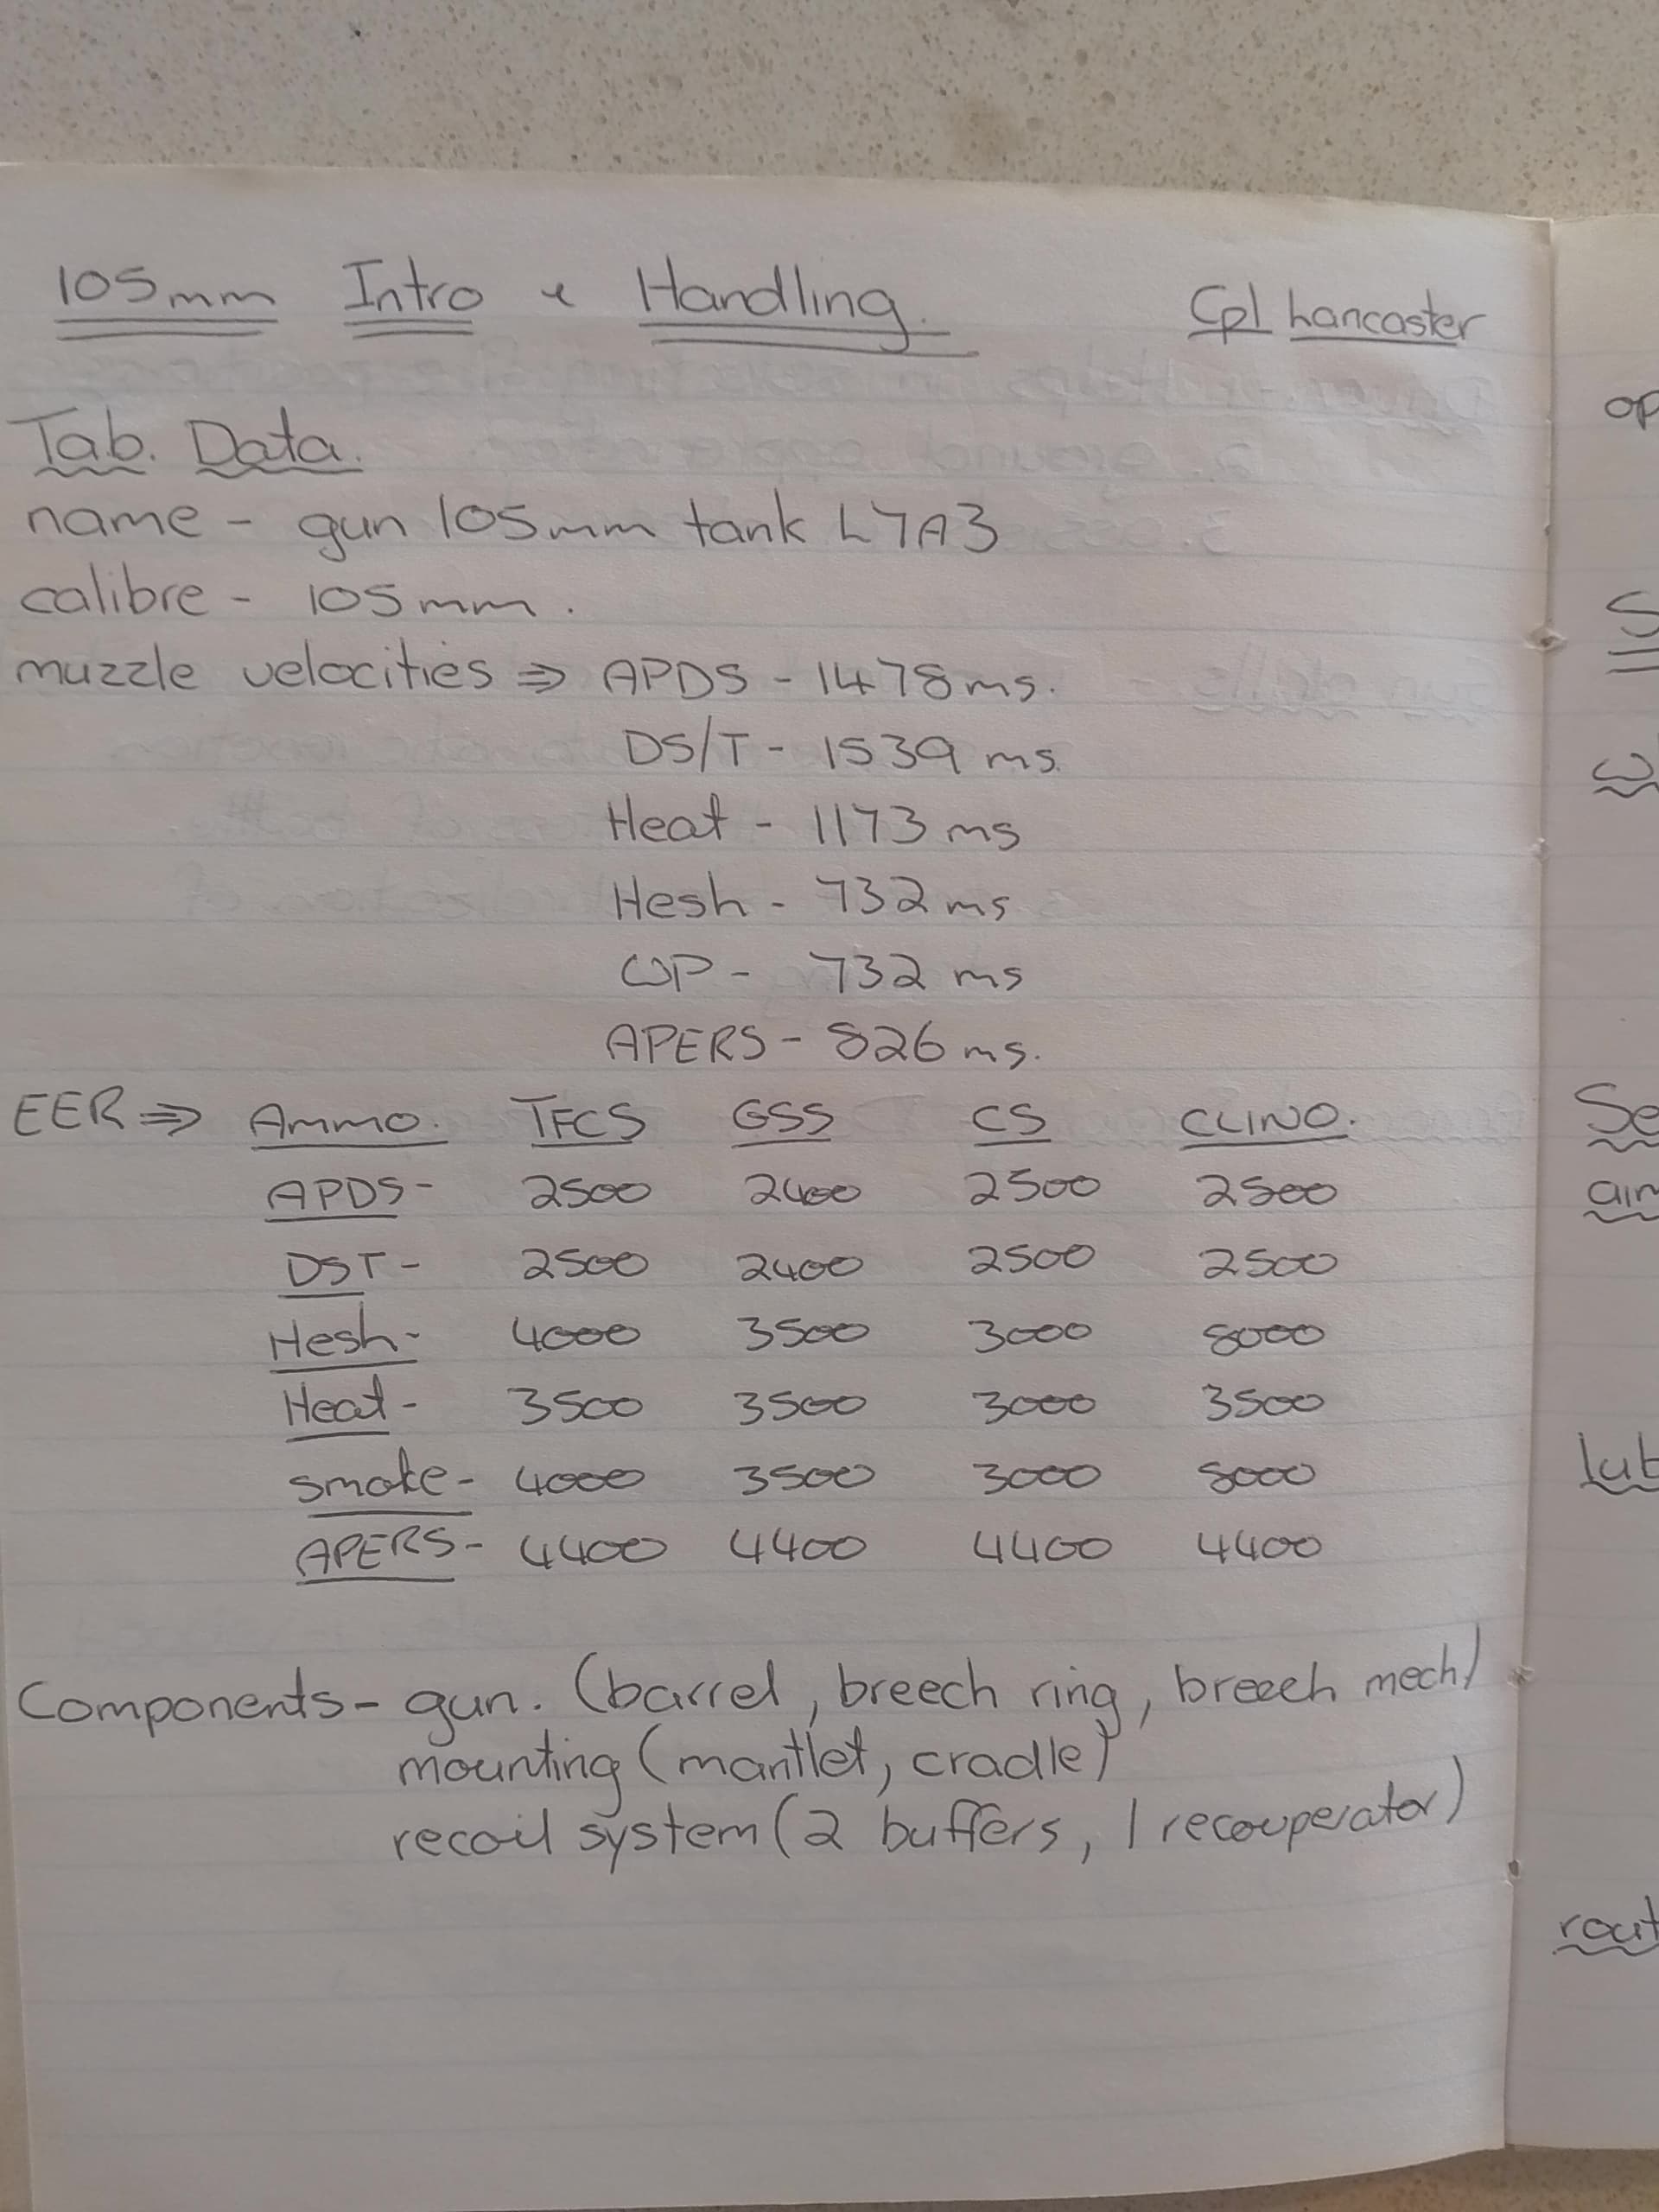 105mm Intro & Handling. Cpl Lancaster
Tab. Data.
name - gun 105mm tank L7A3
calibre - 105mm.
muzzle velocities ⇒ APDS - 1478ms.
DS/T - 1539 ms.
Heat - 1173 ms
Hesh - 732 ms
WP - 732 ms
APERS - 826 ms.
EER ⇒ Ammo. TFCS GSS CS CLINO.
APDS - 2500 2400 2500 2500
DST - 2500 2400 2500 2500
Hesh - 4000 3500 3000 8000
Heat - 3500 3500 3000 3500
smoke - 4000 3500 3000 8000
APERS - 4400 4400 4400 4400
Components - gun. (barrel, breech ring, breech mech)
mounting (mantlet, cradle)
recoil system (2 buffers, 1 recouperator)